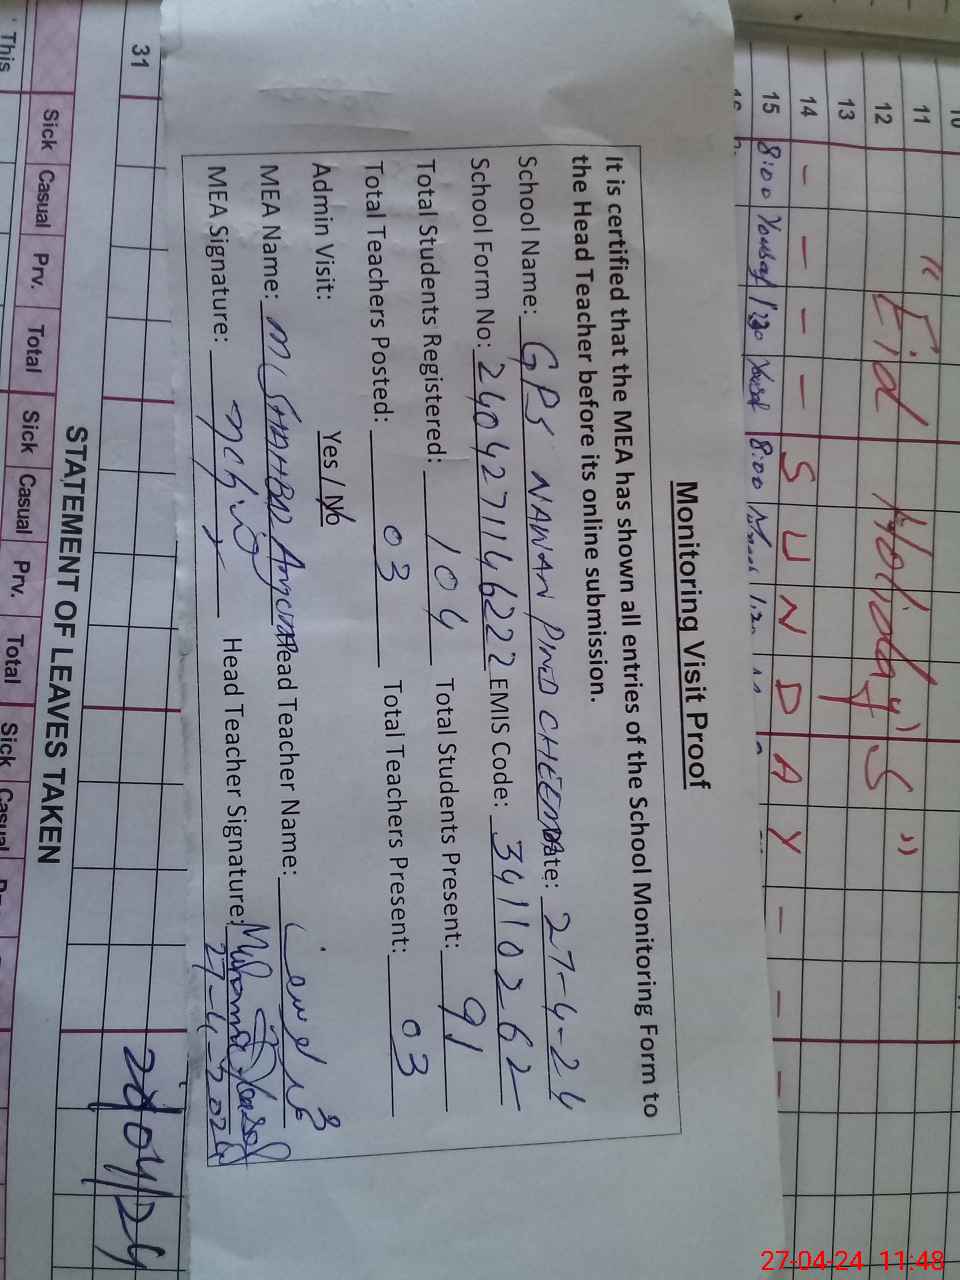 10
11 " Eid Holiday's "
12
13
14 - - - - S U N D A Y - - -
15 8:00 Yousaf 1:30 Yousaf 8:00
16
Monitoring Visit Proof
It is certified that the MEA has shown all entries of the School Monitoring Form to
the Head Teacher before its online submission.
School Name: GPS NAWAN PIND CHEEMA Date: 27-4-24
School Form No: 240427114622 EMIS Code: 34110262
Total Students Registered: 104 Total Students Present: 91
Total Teachers Posted: 03 Total Teachers Present: 03
Admin Visit: Yes / No
MEA Name: M SHAHBAZ Head Teacher Name:
MEA Signature: Head Teacher Signature: Muhammad Yousaf
27-4-2024
31
STATEMENT OF LEAVES TAKEN
Sick Casual Prv. Total Sick Casual Prv. Total Sick Casual
This
27-04-24 11:48